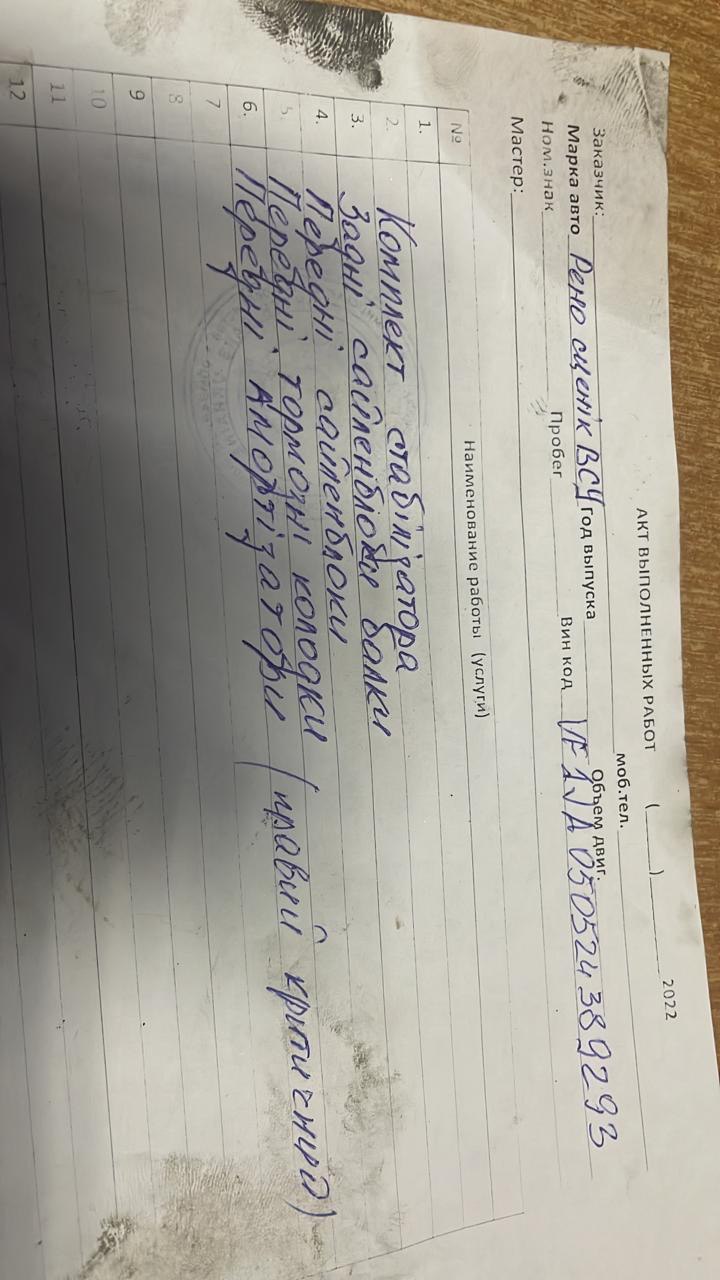 АКТ ВЫПОЛНЕННЫХ РАБОТ (____)________ 2022
Заказчик: моб.тел.
Марка авто Рено сценік ВСУ год выпуска Объем двиг.
Ном.знак Пробег Вин код VF1JA050524389293
Мастер:
№ Наименование работы (услуги)
1.
2. Комплект стабілізатора
3. Задні сайленблоки балки
4. Передні сайленблоки
5. Передні тормозні колодки
6. Передні Амортізатори (правий критичний)
7
8
9
10
11
12